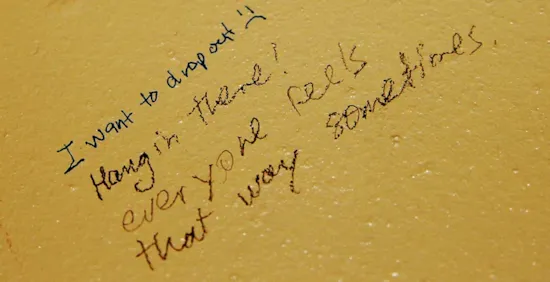 I want to drop out!!
Hang in there!
everyone feels
that way sometimes.